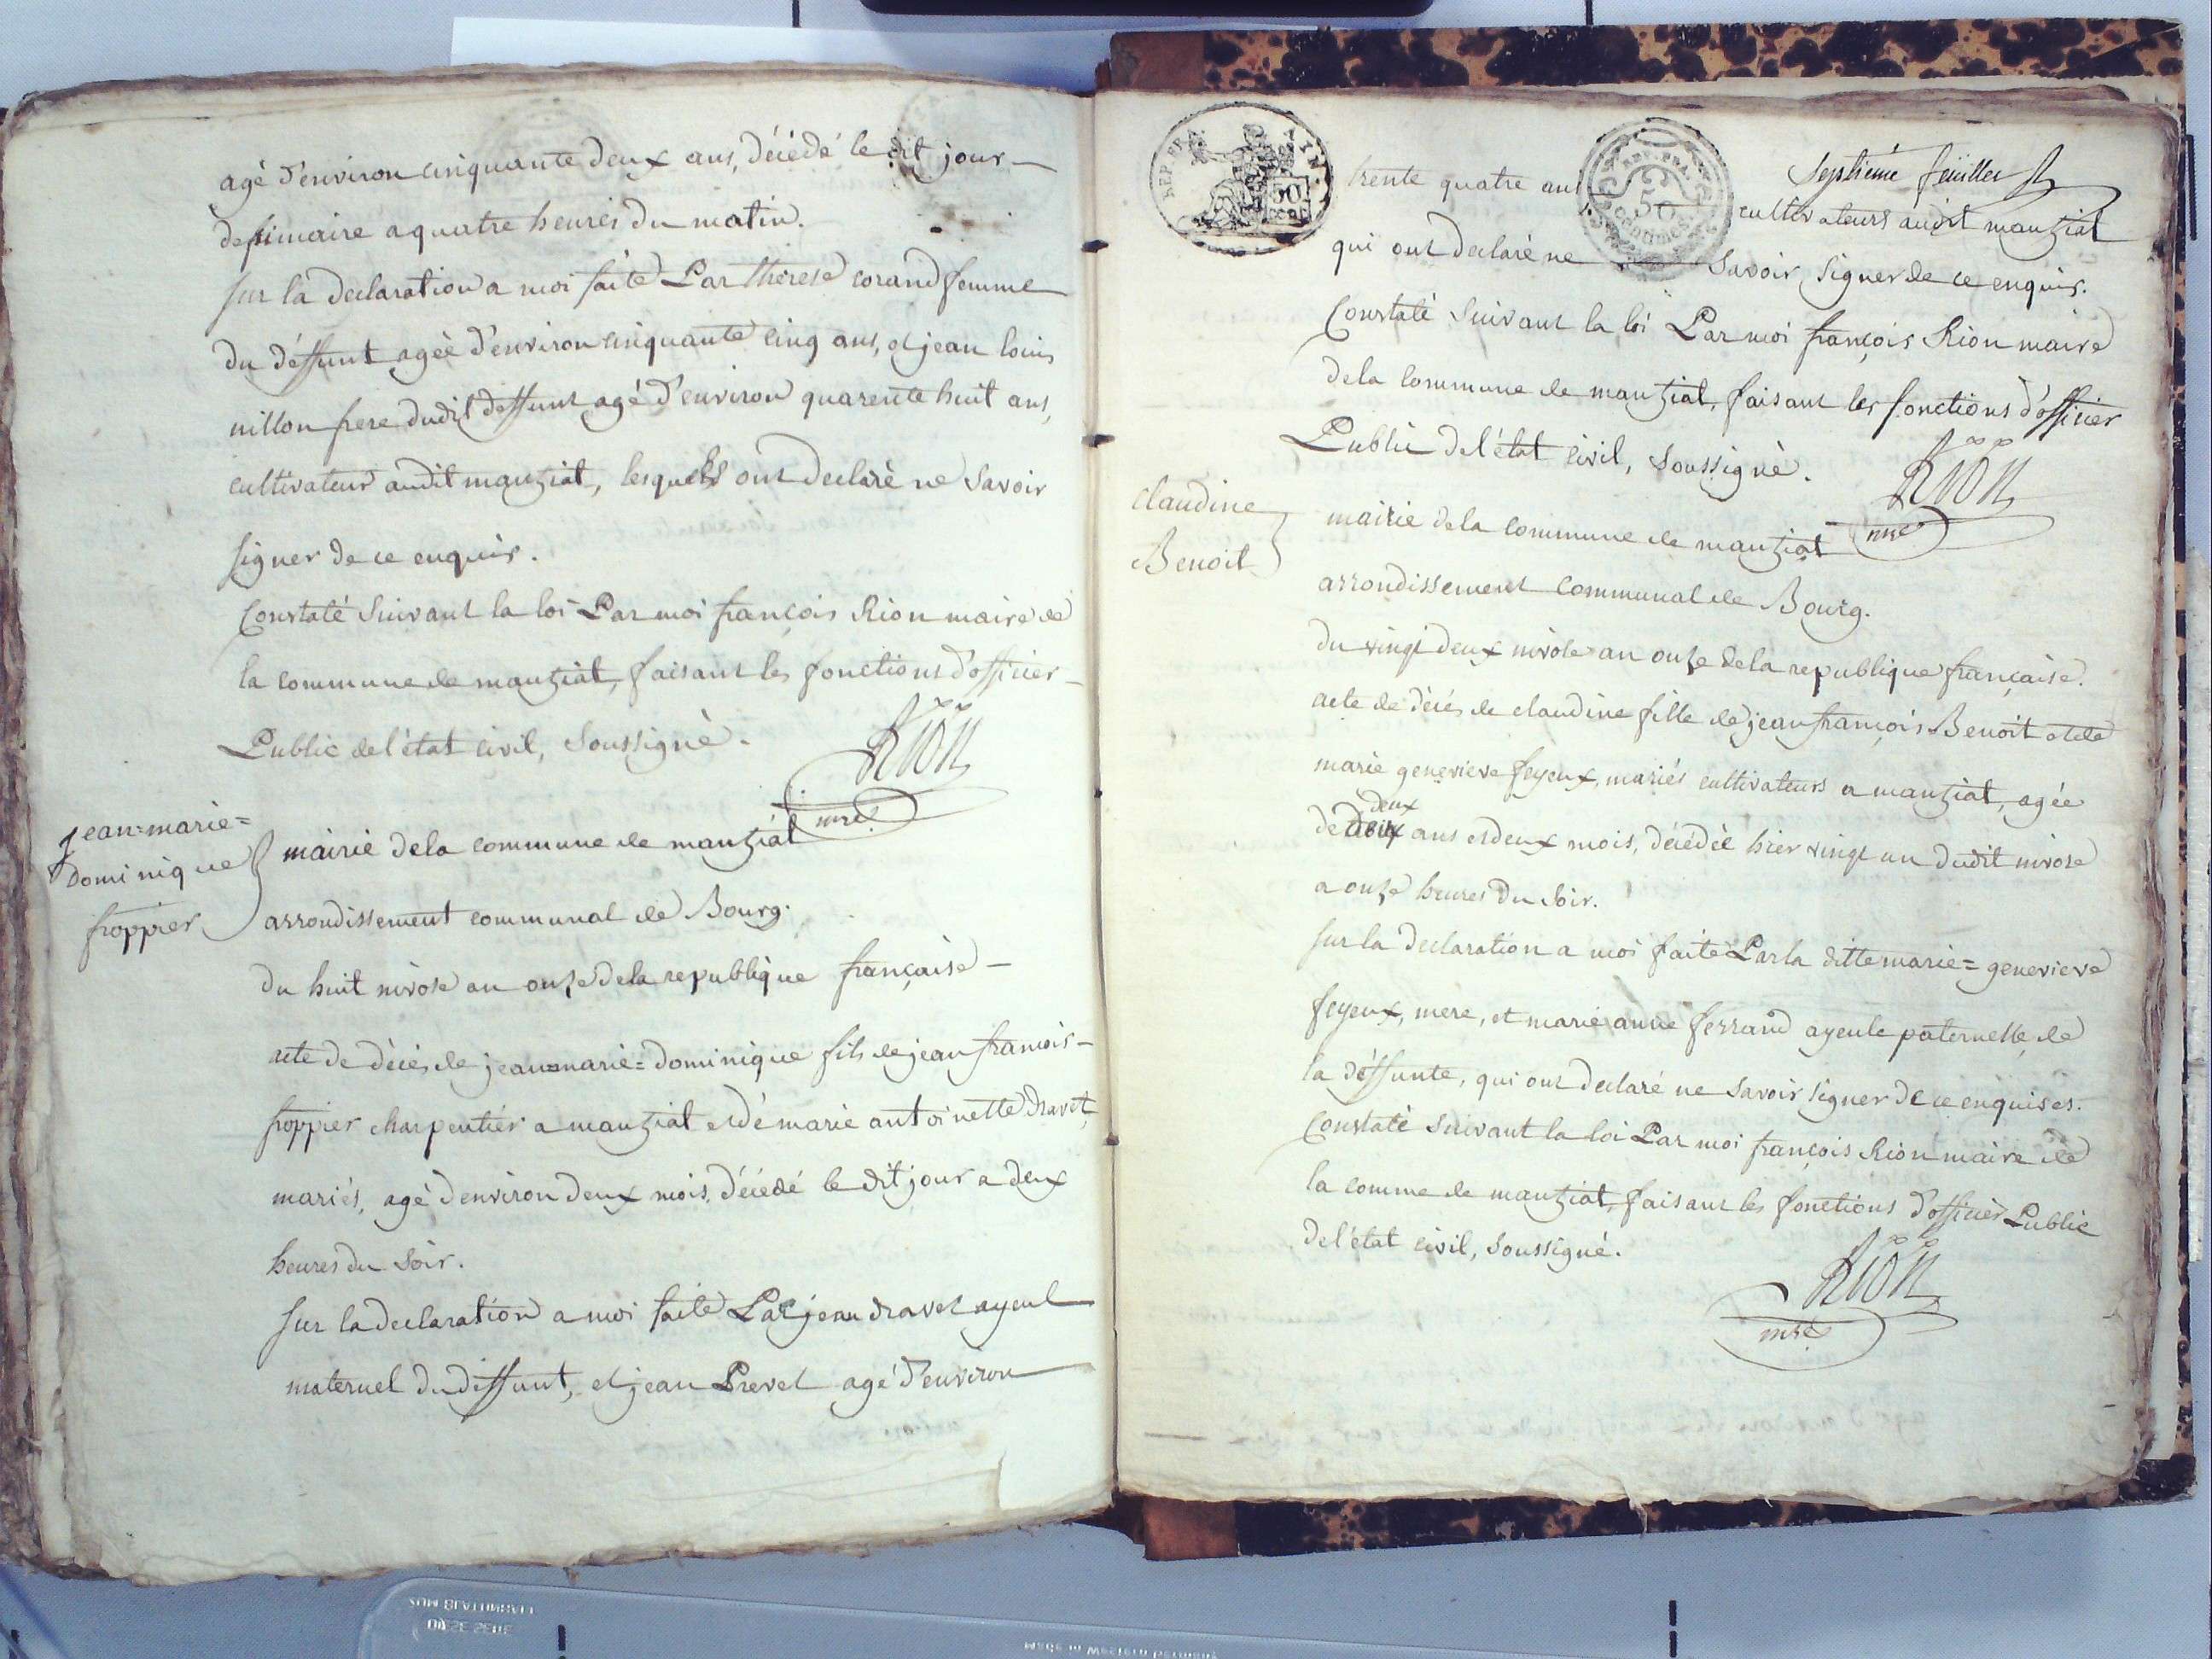 agé d'environ cinquante deux ans, décédé le dit jour
de frimaire a quatre heures du matin.
sur la declaration a moi faite Par therese corand femme
du déffunt agée d'environ cinquante cinq ans, et jean louis
nillon frere dudit deffunt agé d'environ quarente huit ans,
cultivateur audit manziat, lesquels ont declaré ne savoir
signer de ce enquis.
Constaté suivant la loi Par moi françois Rion maire de
la commune de manziat, faisant les fonctions d'officier
Public de l'état civil, soussigné.
Rion
mre
jean=marie=
Dominique
froppier
mairie de la commune de manziat
arrondissement communal de Bourg.
du huit nivose an onze de la republique française
acte de décés de jean=marie=dominique fils de jean francois
froppier charpentier a manziat et dé marie antoinette dravet,
mariés, agé d'environ deux mois, décédé le dit jour a deux
heures du soir.
sur la declaration a moi faite Par jean dravet ayeul
maternel du diffunt, et jean Prevel agé d'environ
REP. FRA.
50
CENT
REP. FRA.
50
centimes
septiéme feuillet
trente quatre ans cultivateurs audit manziat
qui ont declaré ne savoir signer de ce enquis.
Constaté suivant la loi Par moi françois Rion maire
de la commune de manziat, faisant les fonctions d'officier
Public de l'état civil, soussigné.
Rion
mre
claudine
Benoit
mairie de la commune de manziat
arrondissement communal de Bourg.
du vingt deux nivose an onze de la republique française.
acte de décés de claudine fille de jean françois Benoit et de
marie genevieve feyeux, mariés cultivateurs a manziat, agée
deux
de ans et deux mois, décédée hier vingt un dudit nivose
a onze heures du soir.
sur la declaration a moi faite Par la ditte marie=genevieve
feyeux, mere, et marie anne ferrand ayeule paternelle de
la déffunte, qui ont declaré ne savoir signer de ce enquises.
Constaté suivant la loi Par moi françois Rion maire de
la comme de manziat, faisant les fonctions d'officier Public
de l'état civil, soussigné.
Rion
mre
Made in Western Germany